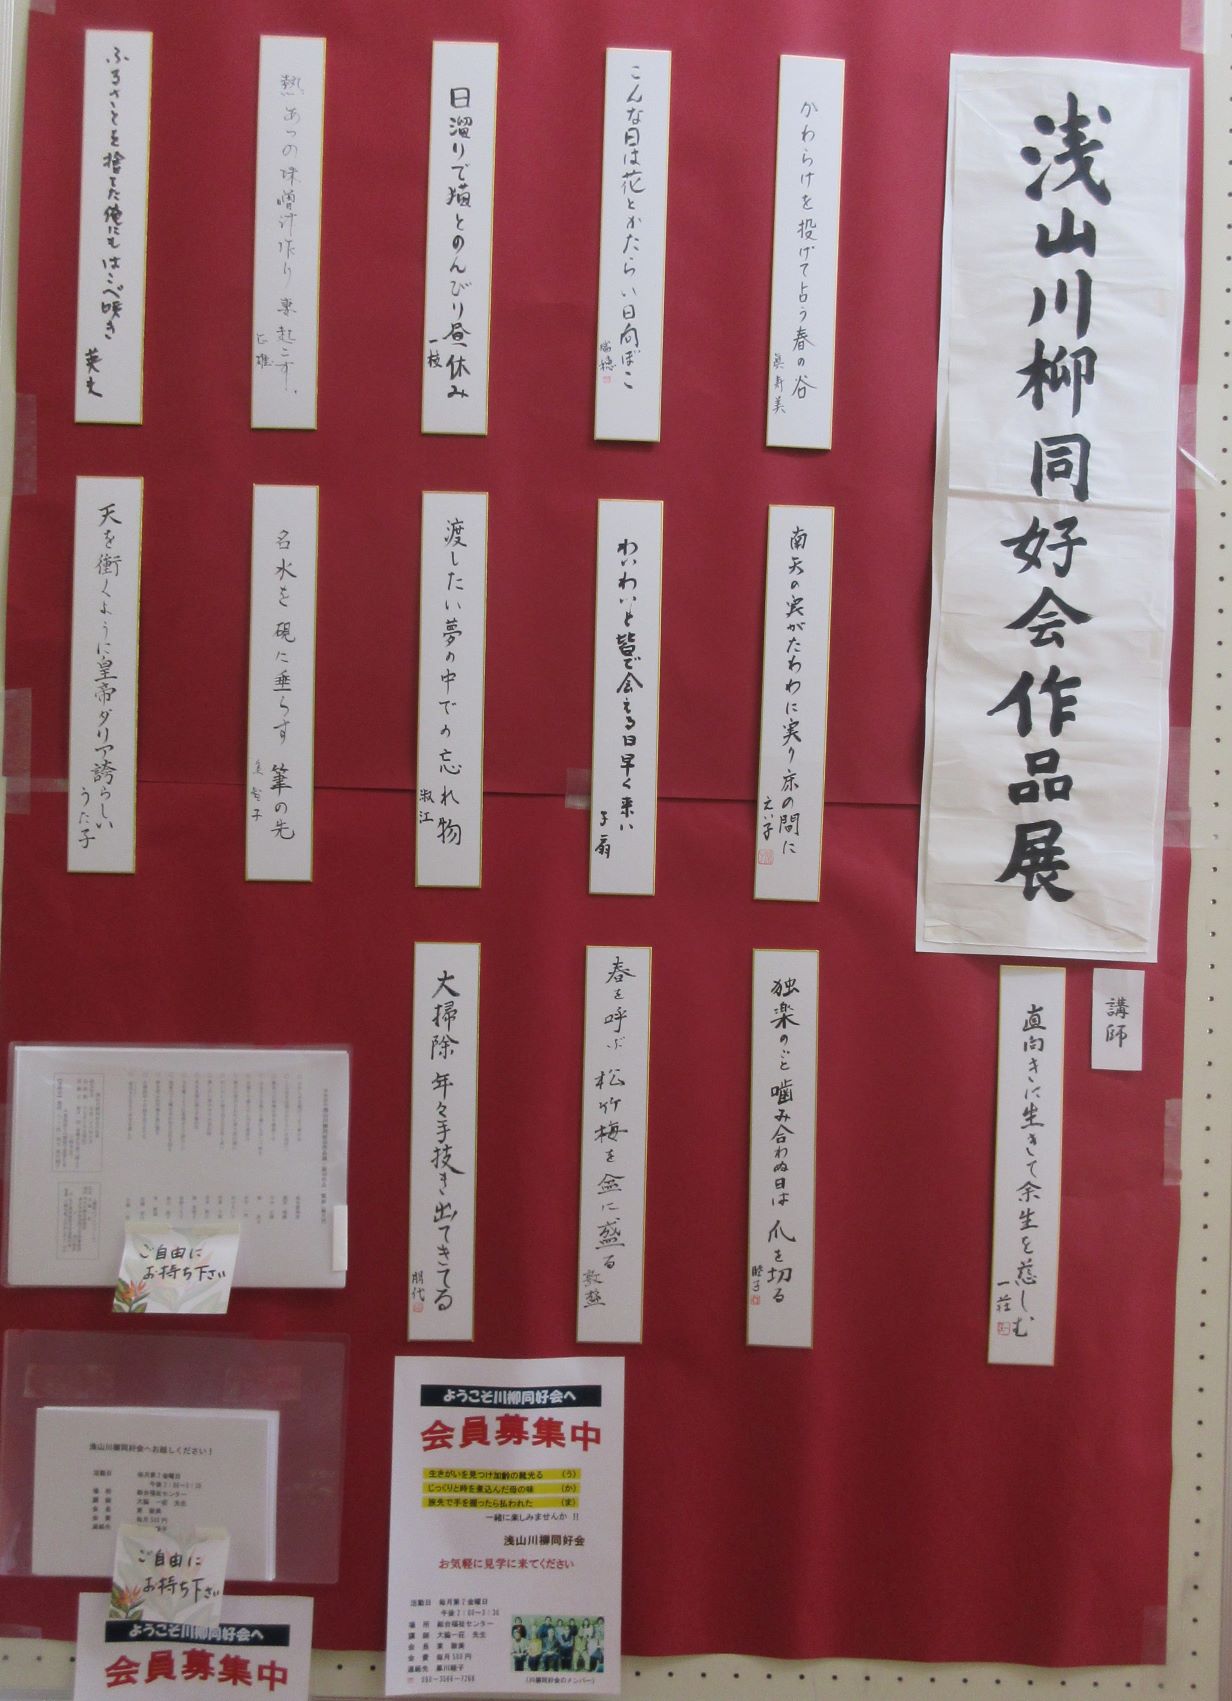 浅山川柳同好会作品展
講師
直向きに生きて余生を慈しむ
一荘
かわらけを投げて占う春の谷
眞寿美
こんな日は花とかたらい日向ぼこ
瑞穂
日溜りで猫とのんびり昼休み
一枝
熱あつの味噌汁作り妻起こす
ふるさとを捨てた俺にもはこべ咲き
英史
南天の実がたわわに実り床の間に
えい子
わいわいと皆で会える日早く来い
子扇
渡したい夢の中での忘れ物
淑江
名水を硯に垂らす筆の先
天を衝くように皇帝ダリア誇らしい
うた子
独楽のごと噛み合わぬ日は爪を切る
睦子
春を呼ぶ松竹梅を盆に盛る
大掃除年々手抜き出てきてる
朋代
ご自由に
お持ち下さい
浅山川柳同好会へお越しください！
活動日 毎月第2金曜日
午後2:00~3:30
場所 総合福祉センター
講師 大脇 一荘 先生
会費 毎月500円
ご自由に
お持ち下さい
ようこそ川柳同好会へ
会員募集中
ようこそ川柳同好会へ
会員募集中
生きがいを見つけ加齢の靴光る (う)
じっくりと時を煮込んだ母の味 (か)
旅先で手を握ったら払われた (ま)
一緒に楽しみませんか !!
浅山川柳同好会
お気軽に見学に来てください
活動日 毎月第2金曜日
午後2:00~3:30
場所 総合福祉センター
講師 大脇一荘 先生
会費 毎月500円
(川柳同好会のメンバー)